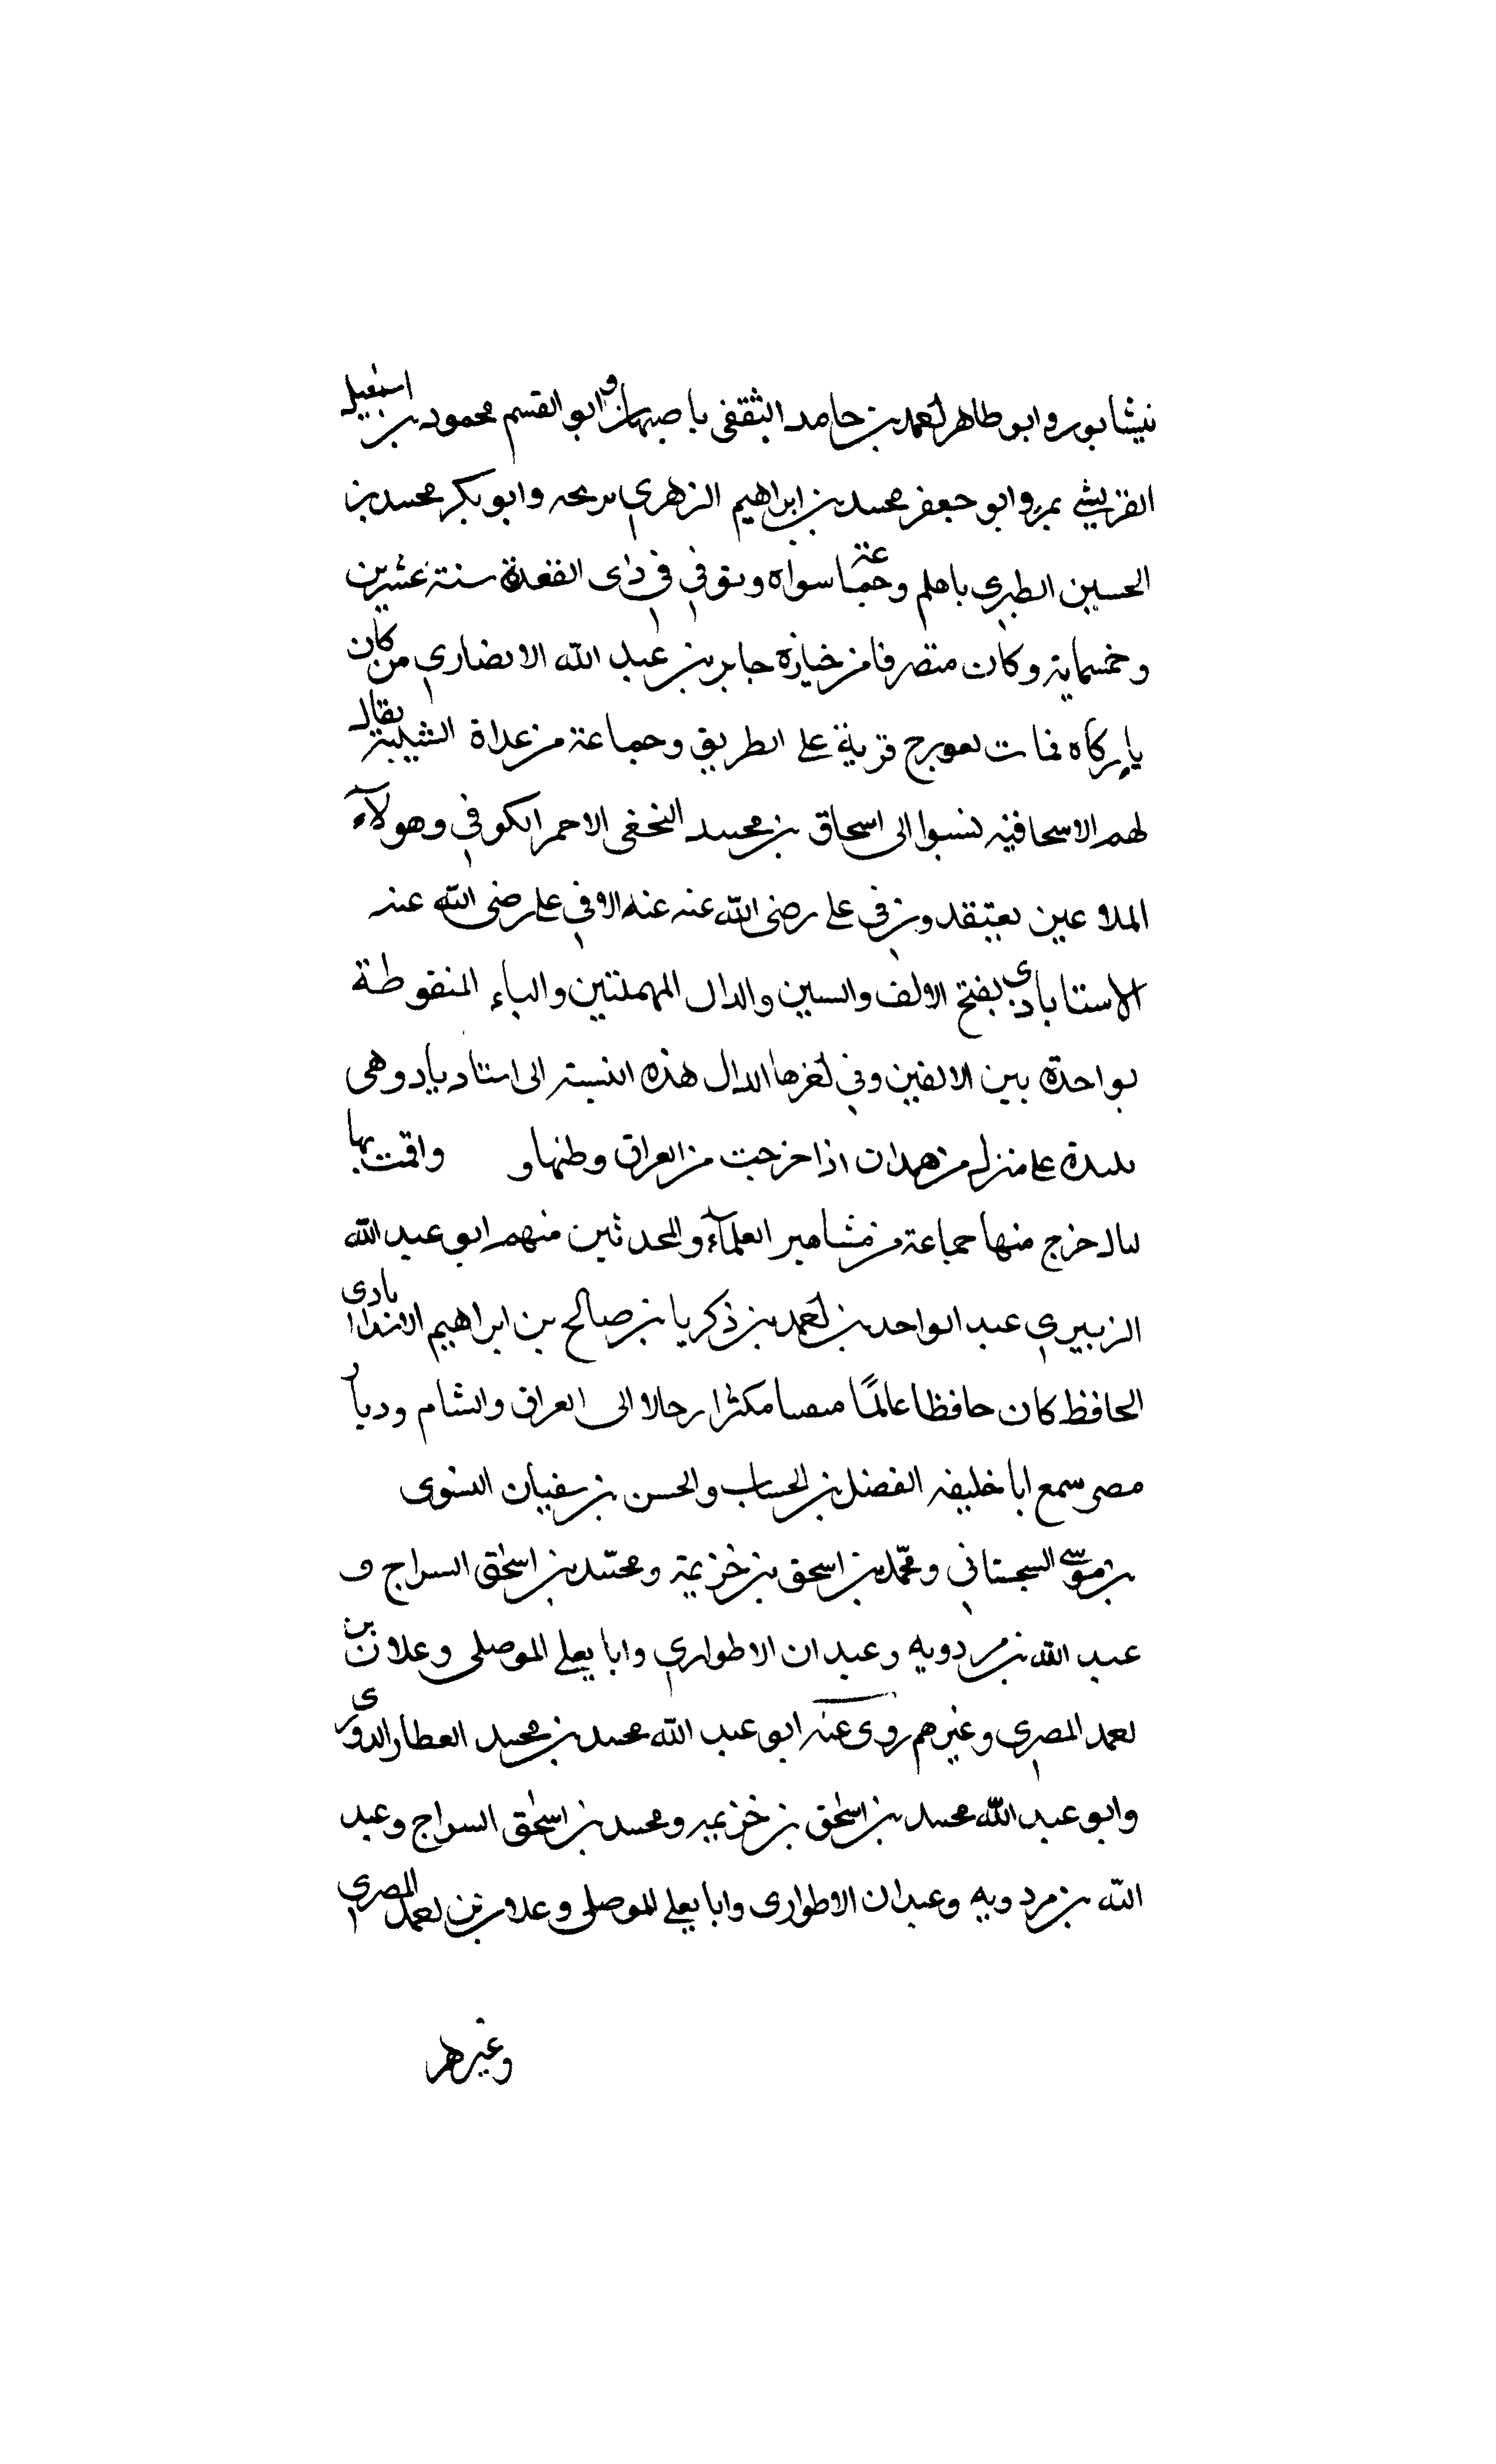 نيشابور وابو طاهر احمد بن حامد الثقفى باصبهان وابو القسم محمود بن اسمعيل
القريشي بمرو وابو جعفر محمد بن ابراهيم الزهري وابو بكر محمد بن
الحسين الطبري باملم وجماعة سواه وتوفي في ذى القعدة سنة عشرين
وخمسماية وكان متصرفا من خيازة جابر بن عبد الله الانصاري من كان
فمات قرية على الطريق وجماعة من غلاة الشيبة يقال
لهم الاسحاقيه نسبوا الى اسحاق بن محمد النخعى الاحمر الكوفي وهولآء
الملاعين يعتقدون في على رضى الله عنه الا في على رضى الله عنه
الاستابادى بفتح الالف والسين والدال المهملتين والباء المنقوطة
بواحدة بين الالفين وفي اخرها الدال هذه النسبة الى استادباد وهى
بليدة على منزل من همدان اذا خرجت من العراق وطنها و واقمت بها
ليال خرج منها جماعة من مشاهير العلمآء والمحدثين منهم ابو عبد الله
الزبيري عبد الواحد بن احمد بن ذكريا بن صالح بن ابراهيم
الحافظ كان حافظا عالمًا مكثرا رحالا الى العراق والشام وديار
مصر سمع ابا خليفه الفضل بن الحساب والحسن بن سفيان النسوى
بن موسى السجستاني ومحمد بن اسحق بن خزيمة ومحمد بن اسحق السراج و
عبد الله بن مردويه وعبدان الاطواري وابا يعلى الموصلى وعلان بن
احمد المصري وغيرهم روى عنه ابو عبد الله محمد بن محمد العطار الدورى
وابو عبد الله محمد بن اسحق بن خزيمه ومحمد بن اسحق السراج وعبد
الله بن مردويه وعبدان الاطوارى وابا يعلى الموصلى وعلان بن احمد المصرى
وغيرهم